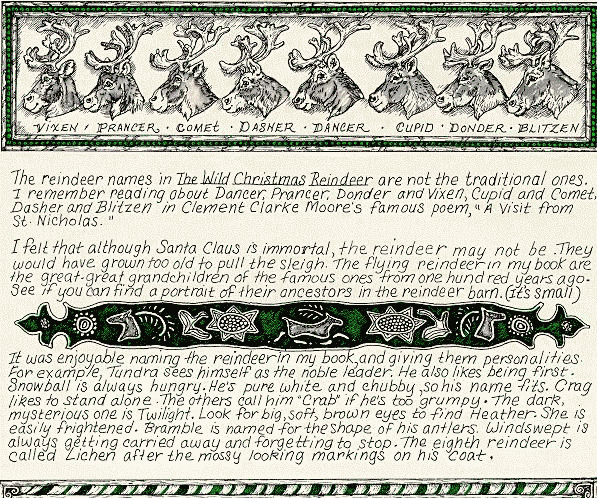 VIXEN · PRANCER · COMET · DASHER · DANCER · CUPID · DONDER · BLITZEN
The reindeer names in The Wild Christmas Reindeer are not the traditional ones.
I remember reading about Dancer, Prancer, Donder and Vixen, Cupid and Comet,
Dasher and Blitzen in Clement Clarke Moore's famous poem, "A Visit from
St. Nicholas."
I felt that although Santa Claus is immortal, the reindeer may not be. They
would have grown too old to pull the sleigh. The flying reindeer in my book are
the great-great grandchildren of the famous ones from one hundred years ago.
See if you can find a portrait of their ancestors in the reindeer barn. (It's small)
It was enjoyable naming the reindeer in my book, and giving them personalities.
For example, Tundra sees himself as the noble leader. He also likes being first.
Snowball is always hungry. He's pure white and chubby, so his name fits. Crag
likes to stand alone. The others call him "Crab" if he's too grumpy. The dark,
mysterious one is Twilight. Look for big, soft, brown eyes to find Heather. She is
easily frightened. Bramble is named for the shape of his antlers. Windswept is
always getting carried away and forgetting to stop. The eighth reindeer is
called Lichen after the mossy looking markings on his coat.